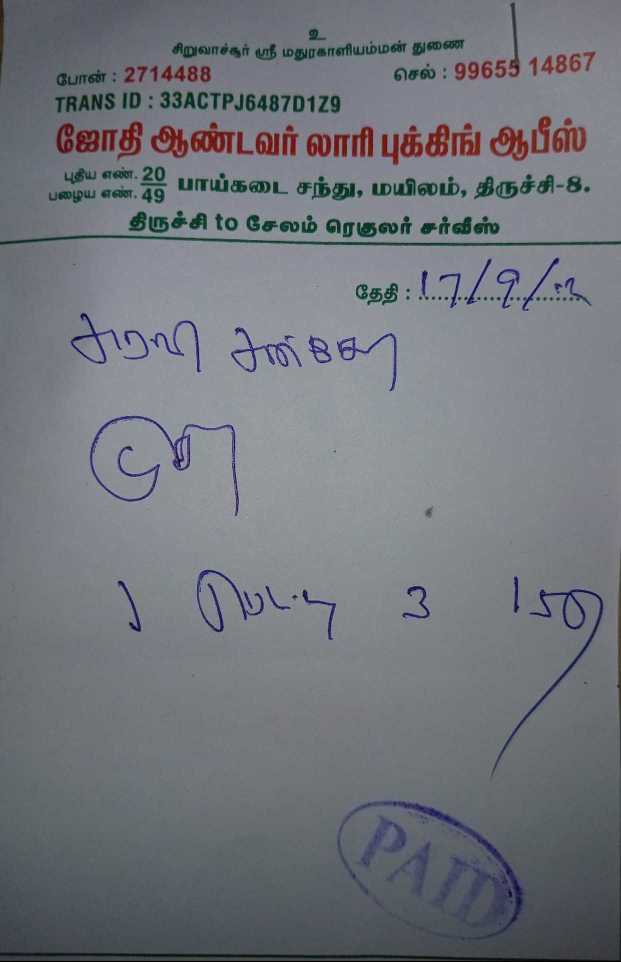 உ
சிறுவாச்சூர் ஸ்ரீ மதுரகாளியம்மன் துணை
போன் : 2714488 செல் : 99655 14867
TRANS ID : 33ACTPJ6487D1Z9
ஜோதி ஆண்டவர் லாரி புக்கிங் ஆபீஸ்
புதிய எண். 20
பழைய எண். 49 பாய்கடை சந்து, மயிலம், திருச்சி-8.
திருச்சி to சேலம் ரெகுலர் சர்வீஸ்
தேதி : 17/9/
1 பெட்டி 3 150
PAID